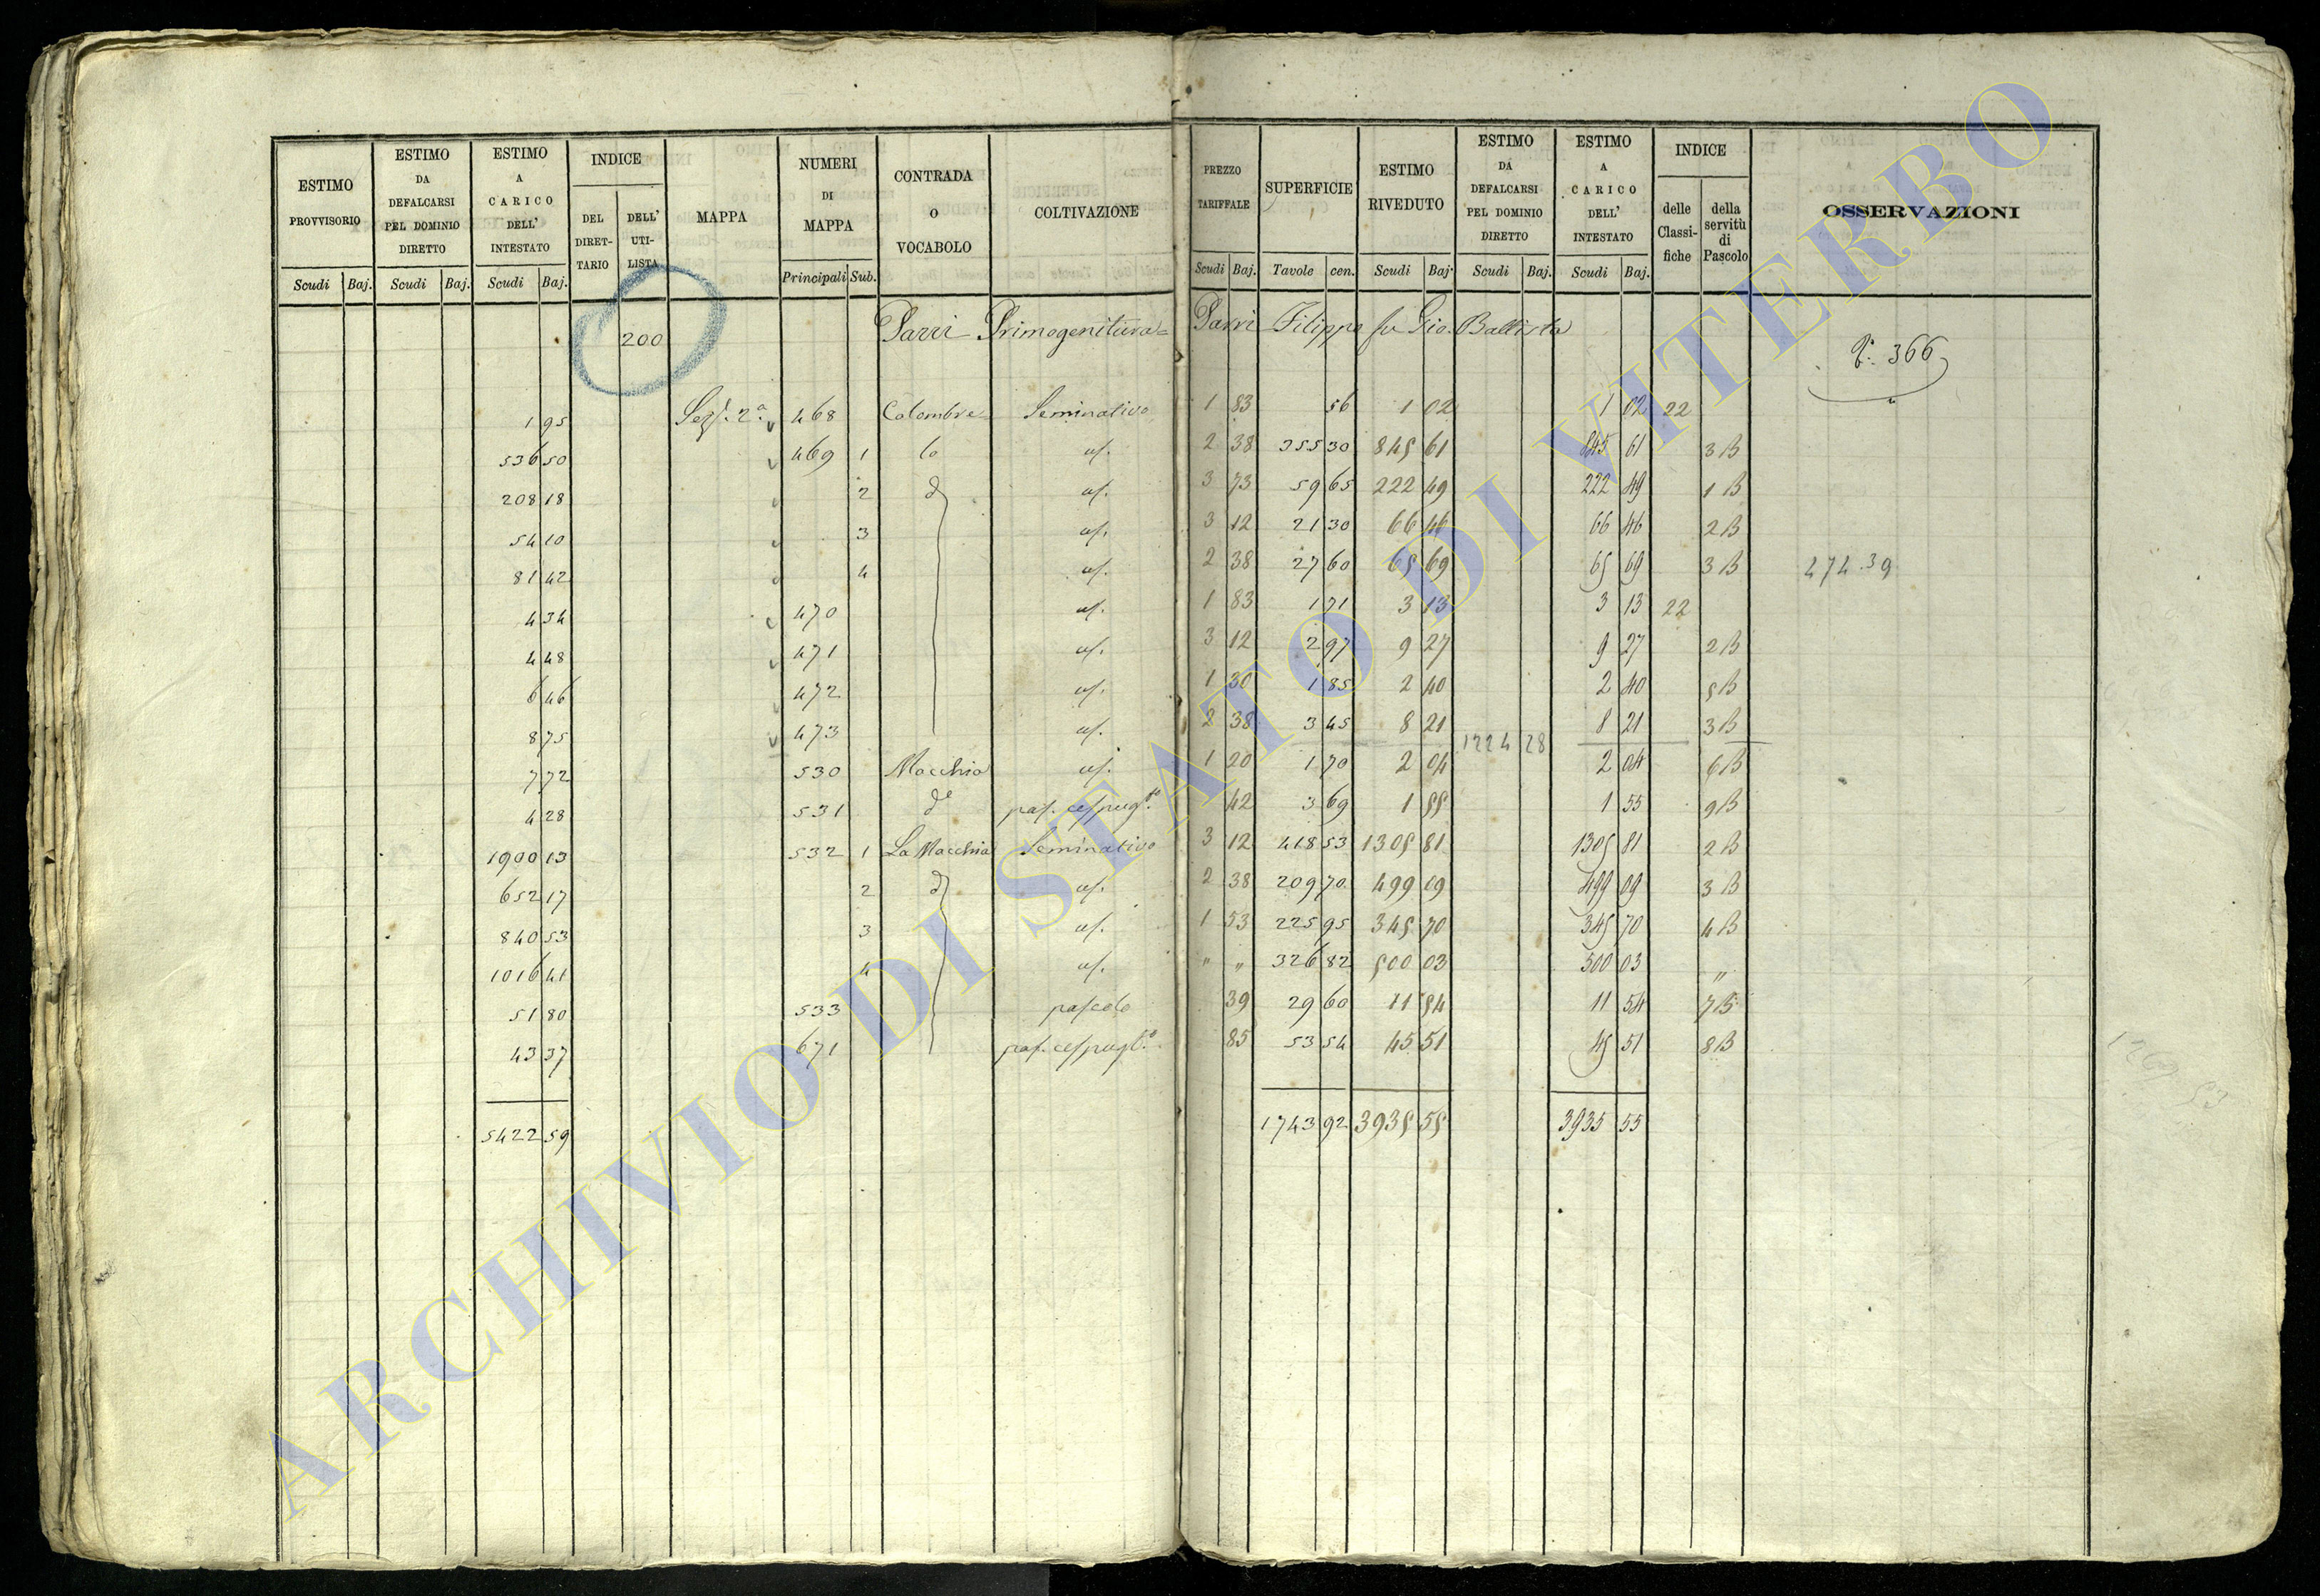 ESTIMO PROVVISORIO Scudi Baj.
ESTIMO DA DEFALCARSI PEL DOMINIO DIRETTO Scudi Baj.
ESTIMO A CARICO DELL' INTESTATO Scudi Baj.
INDICE DEL DIRET-TARIO DELL' UTI-LISTA
MAPPA
NUMERI DI MAPPA Principali Sub.
CONTRADA O VOCABOLO
COLTIVAZIONE
PREZZO TARIFFALE Scudi Baj.
SUPERFICIE Tavole cen.
ESTIMO RIVEDUTO Scudi Baj.
ESTIMO DA DEFALCARSI PEL DOMINIO DIRETTO Scudi Baj.
ESTIMO A CARICO DELL' INTESTATO Scudi Baj.
INDICE delle Classi-fiche della servitù di Pascolo
OSSERVAZIONI
200 Parri Primogenitura = Parri Filippo fu Gio. Battista
366
1 95 Sez. 2a 468 Colombre Seminativo 1 83 56 1 02 1 02 22
536 50 469 1 lo 2 38 355 30 845 61 845 61 3 B
208 18 2 d 3 73 59 65 222 49 222 49 1 B
54 10 3 3 12 21 30 66 46 66 46 2 B
81 42 4 2 38 27 60 65 69 65 69 3 B 474.39
4 34 470 1 83 1 71 3 13 3 13 22
4 48 471 3 12 2 97 9 27 9 27 2 B
6 46 472 1 30 1 85 2 40 2 40 5 B
8 75 473 2 38 3 45 8 21 8 21 3 B
1224 28
7 72 530 Macchia 1 20 1 70 2 04 2 04 6 B
4 28 531 do pas. cespugto 42 3 69 1 55 1 55 9 B
1900 13 532 1 La Macchia Seminativo 3 12 418 53 1305 81 1305 81 2 B
652 17 2 d 2 38 209 70 499 09 499 09 3 B
840 53 3 1 53 225 95 345 70 345 70 4 B
1016 41 4 " " 326 82 500 03 500 03 "
51 80 533 pascolo 39 29 60 11 54 11 54 7 B
43 37 671 pas. cespugto 85 53 54 45 51 45 51 8 B
5422 59 1743 92 3935 55 3935 55
ARCHIVIO DI STATO DI VITERBO